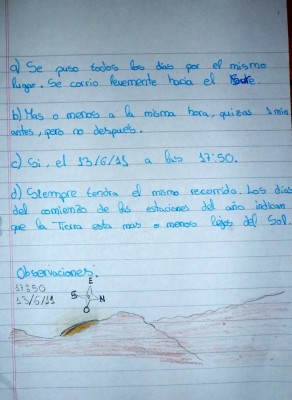 a) Se puso todos los días por el mismo
lugar. Se corrio levemente hacia el Norte.
b) Mas o menos a la misma hora, quizas 1 min
antes, pero no despues.
c) Si, el 13/6/11 a las 17:50.
d) Siempre tendra el mismo recorrido. Los dias
del comienzo de las estaciones del año indican
que la Tierra esta mas o menos lejos del Sol.
Observaciones:
17:50
13/6/11
E
S N
O